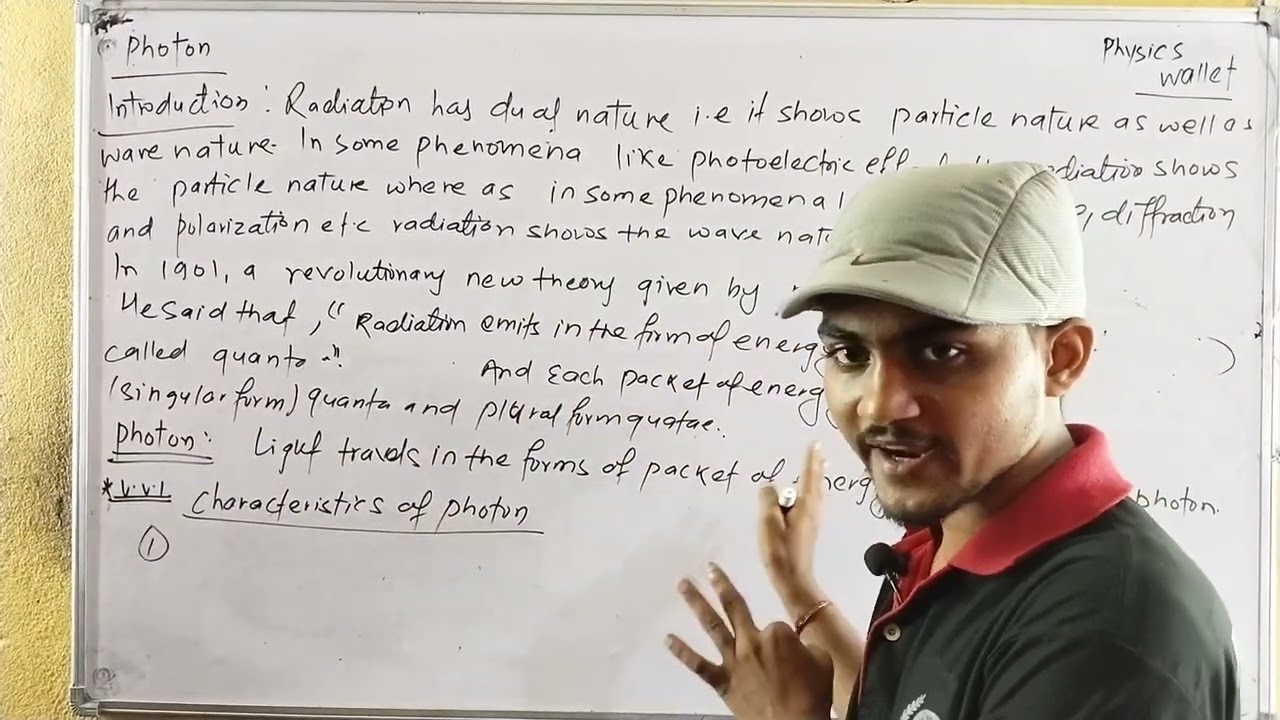 Photon
Physics
wallet
Introduction: Radiation has dual nature i.e it shows particle nature as well as
wave nature. In some phenomena like photoelectric radiation shows
the particle nature where as in some phenomena diffraction
and polarization etc radiation shows the wave
In 1901, a revolutionary new theory given by
He said that, "Radiation emits in the form of
called quanta." And Each packet of
(singular form) quanta and plural form quatae.
Photon: Light travels in the forms of packet of photon.
*V.V.I Characteristics of photon
①